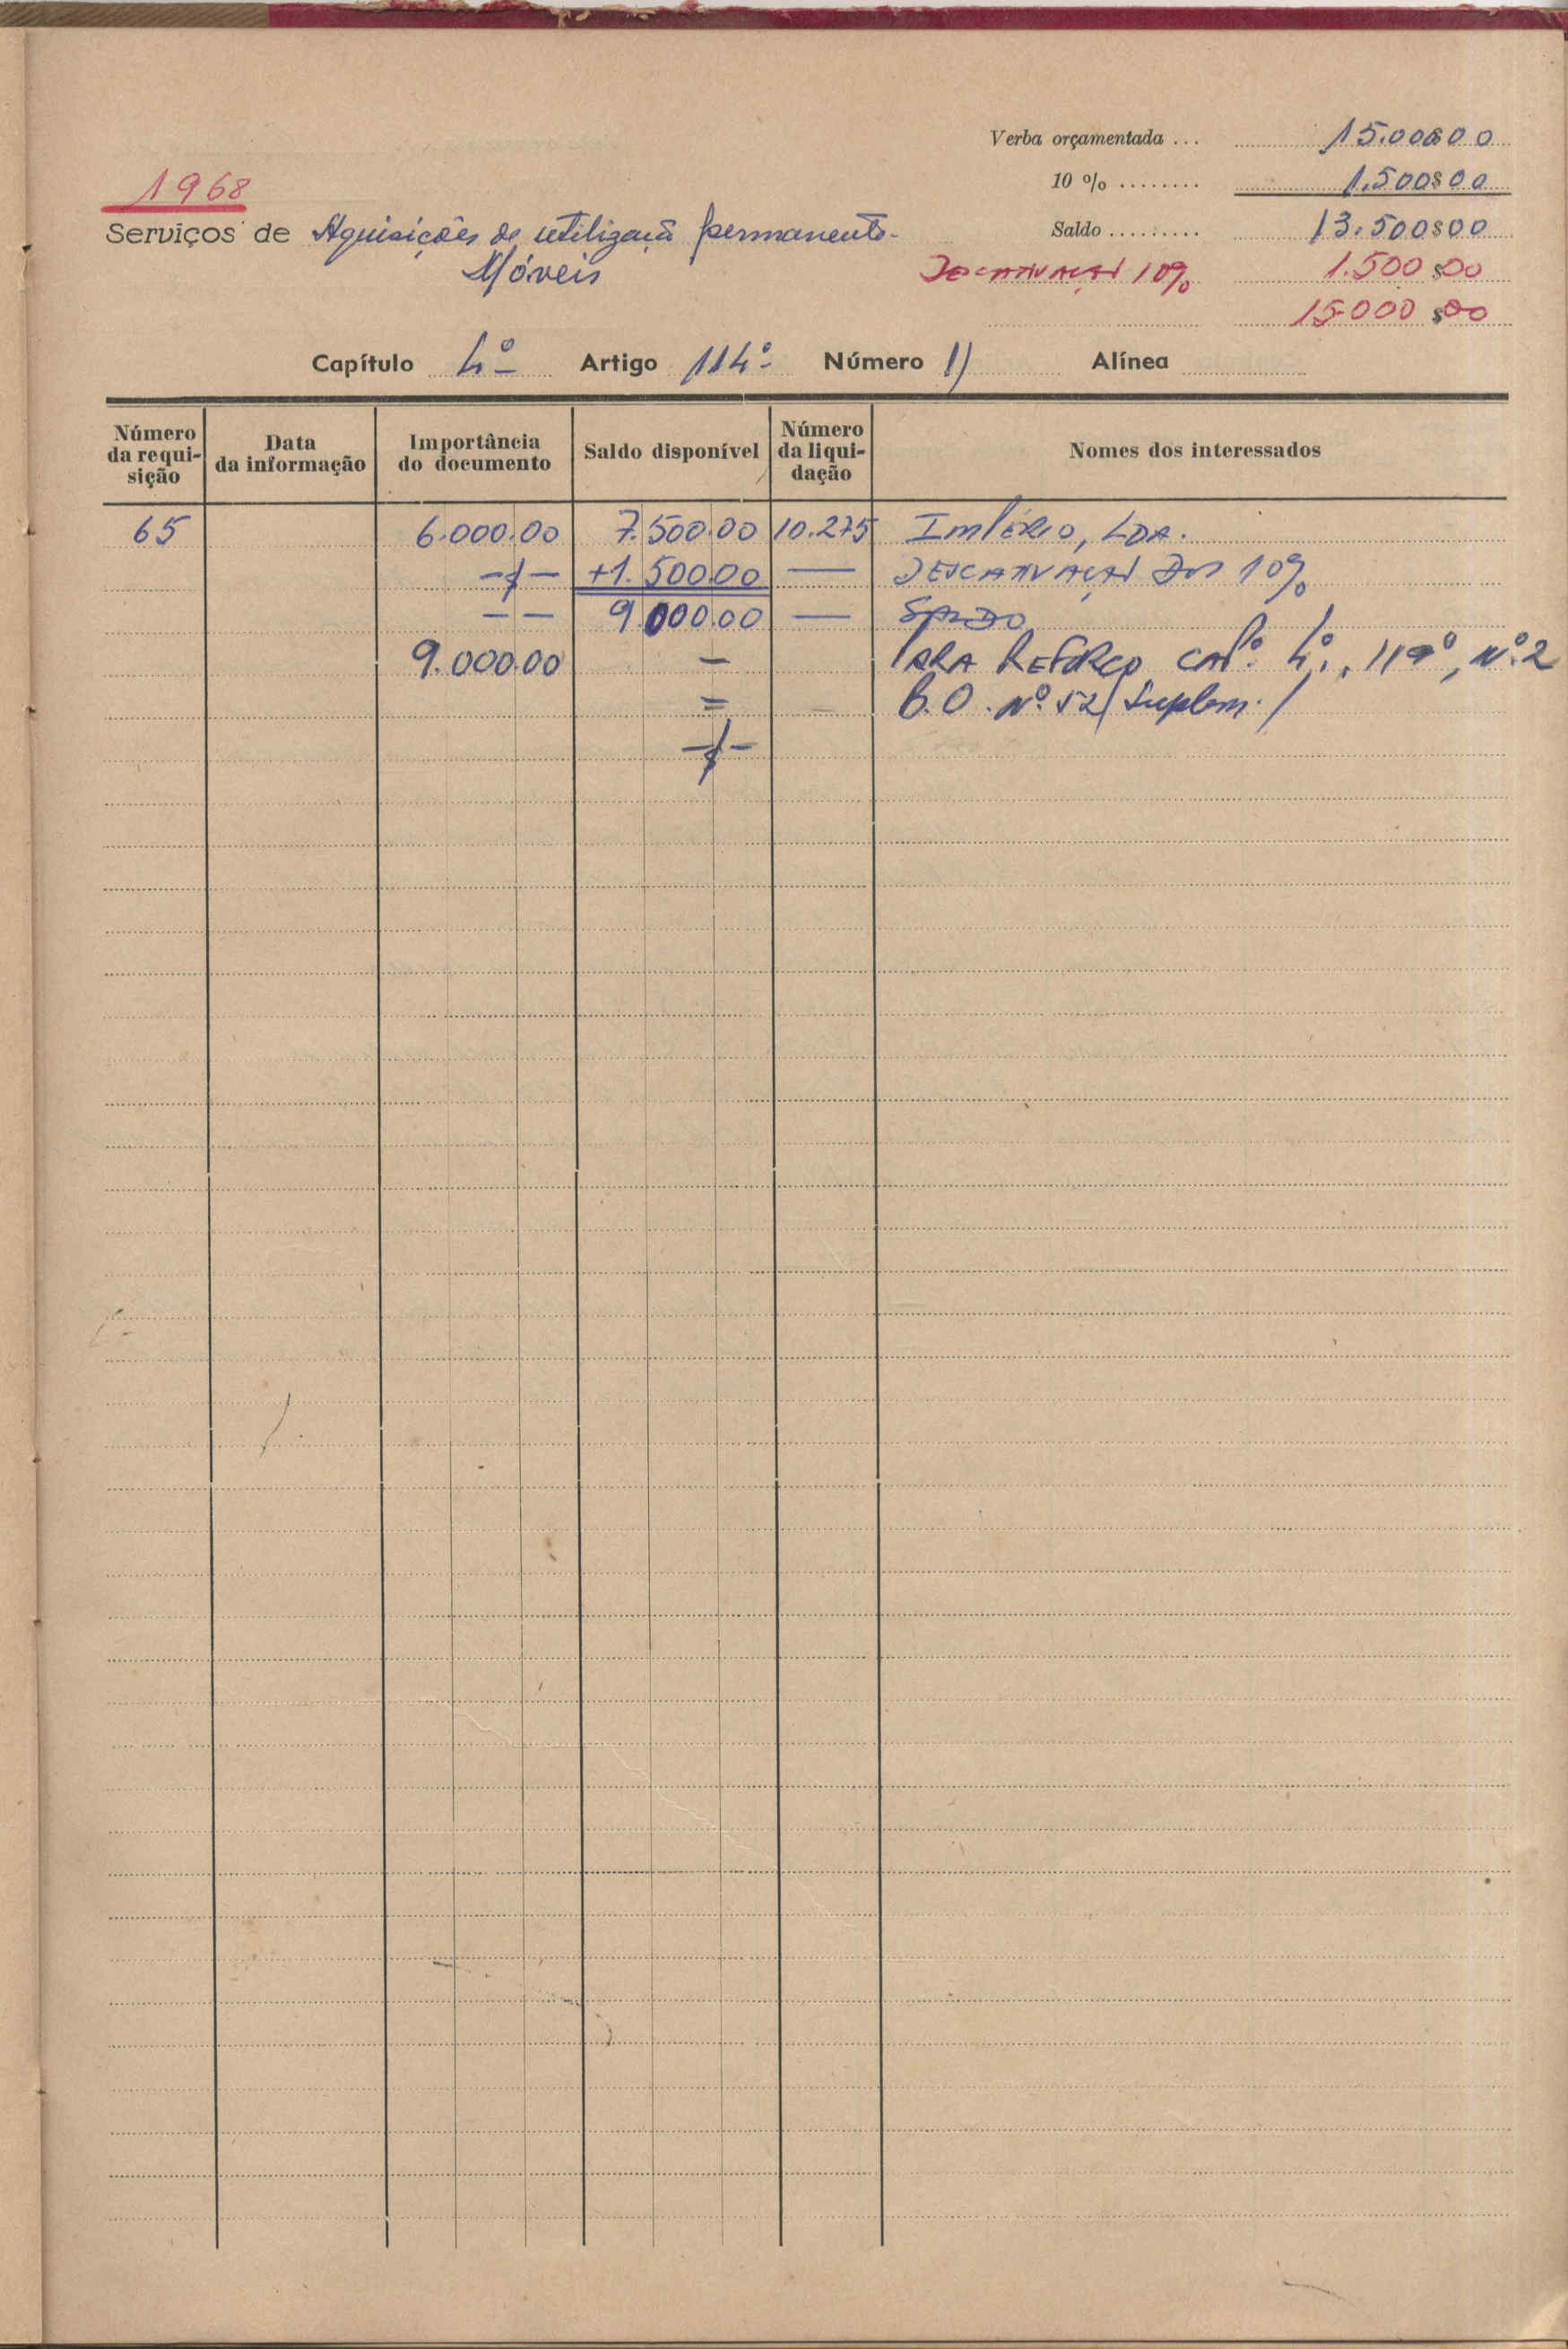 Verba orçamentada ... 15.000$00
1968
10 % ........ 1.500$00
Serviços de Aquisições de utilização permanente -
Saldo ......... 13.500$00
Móveis
DESCATIVAÇÃO 10% 1.500$00
15.000$00
Capítulo 4º Artigo 114º Número 1) Alínea
Número da requi-sição Data da informação Importância do documento Saldo disponível Número da liqui-dação Nomes dos interessados
65 6.000.00 7.500.00 10.275 IMPÉRIO, LDA.
-/- +1.500.00 — DESCATIVAÇÃO DOS 10%
— — 9.000.00 — SALDO
9.000.00 — PARA REFORÇO CAPº. 4º., 119º, Nº.2
= B.O. Nº. 52/Suplem./
-/-